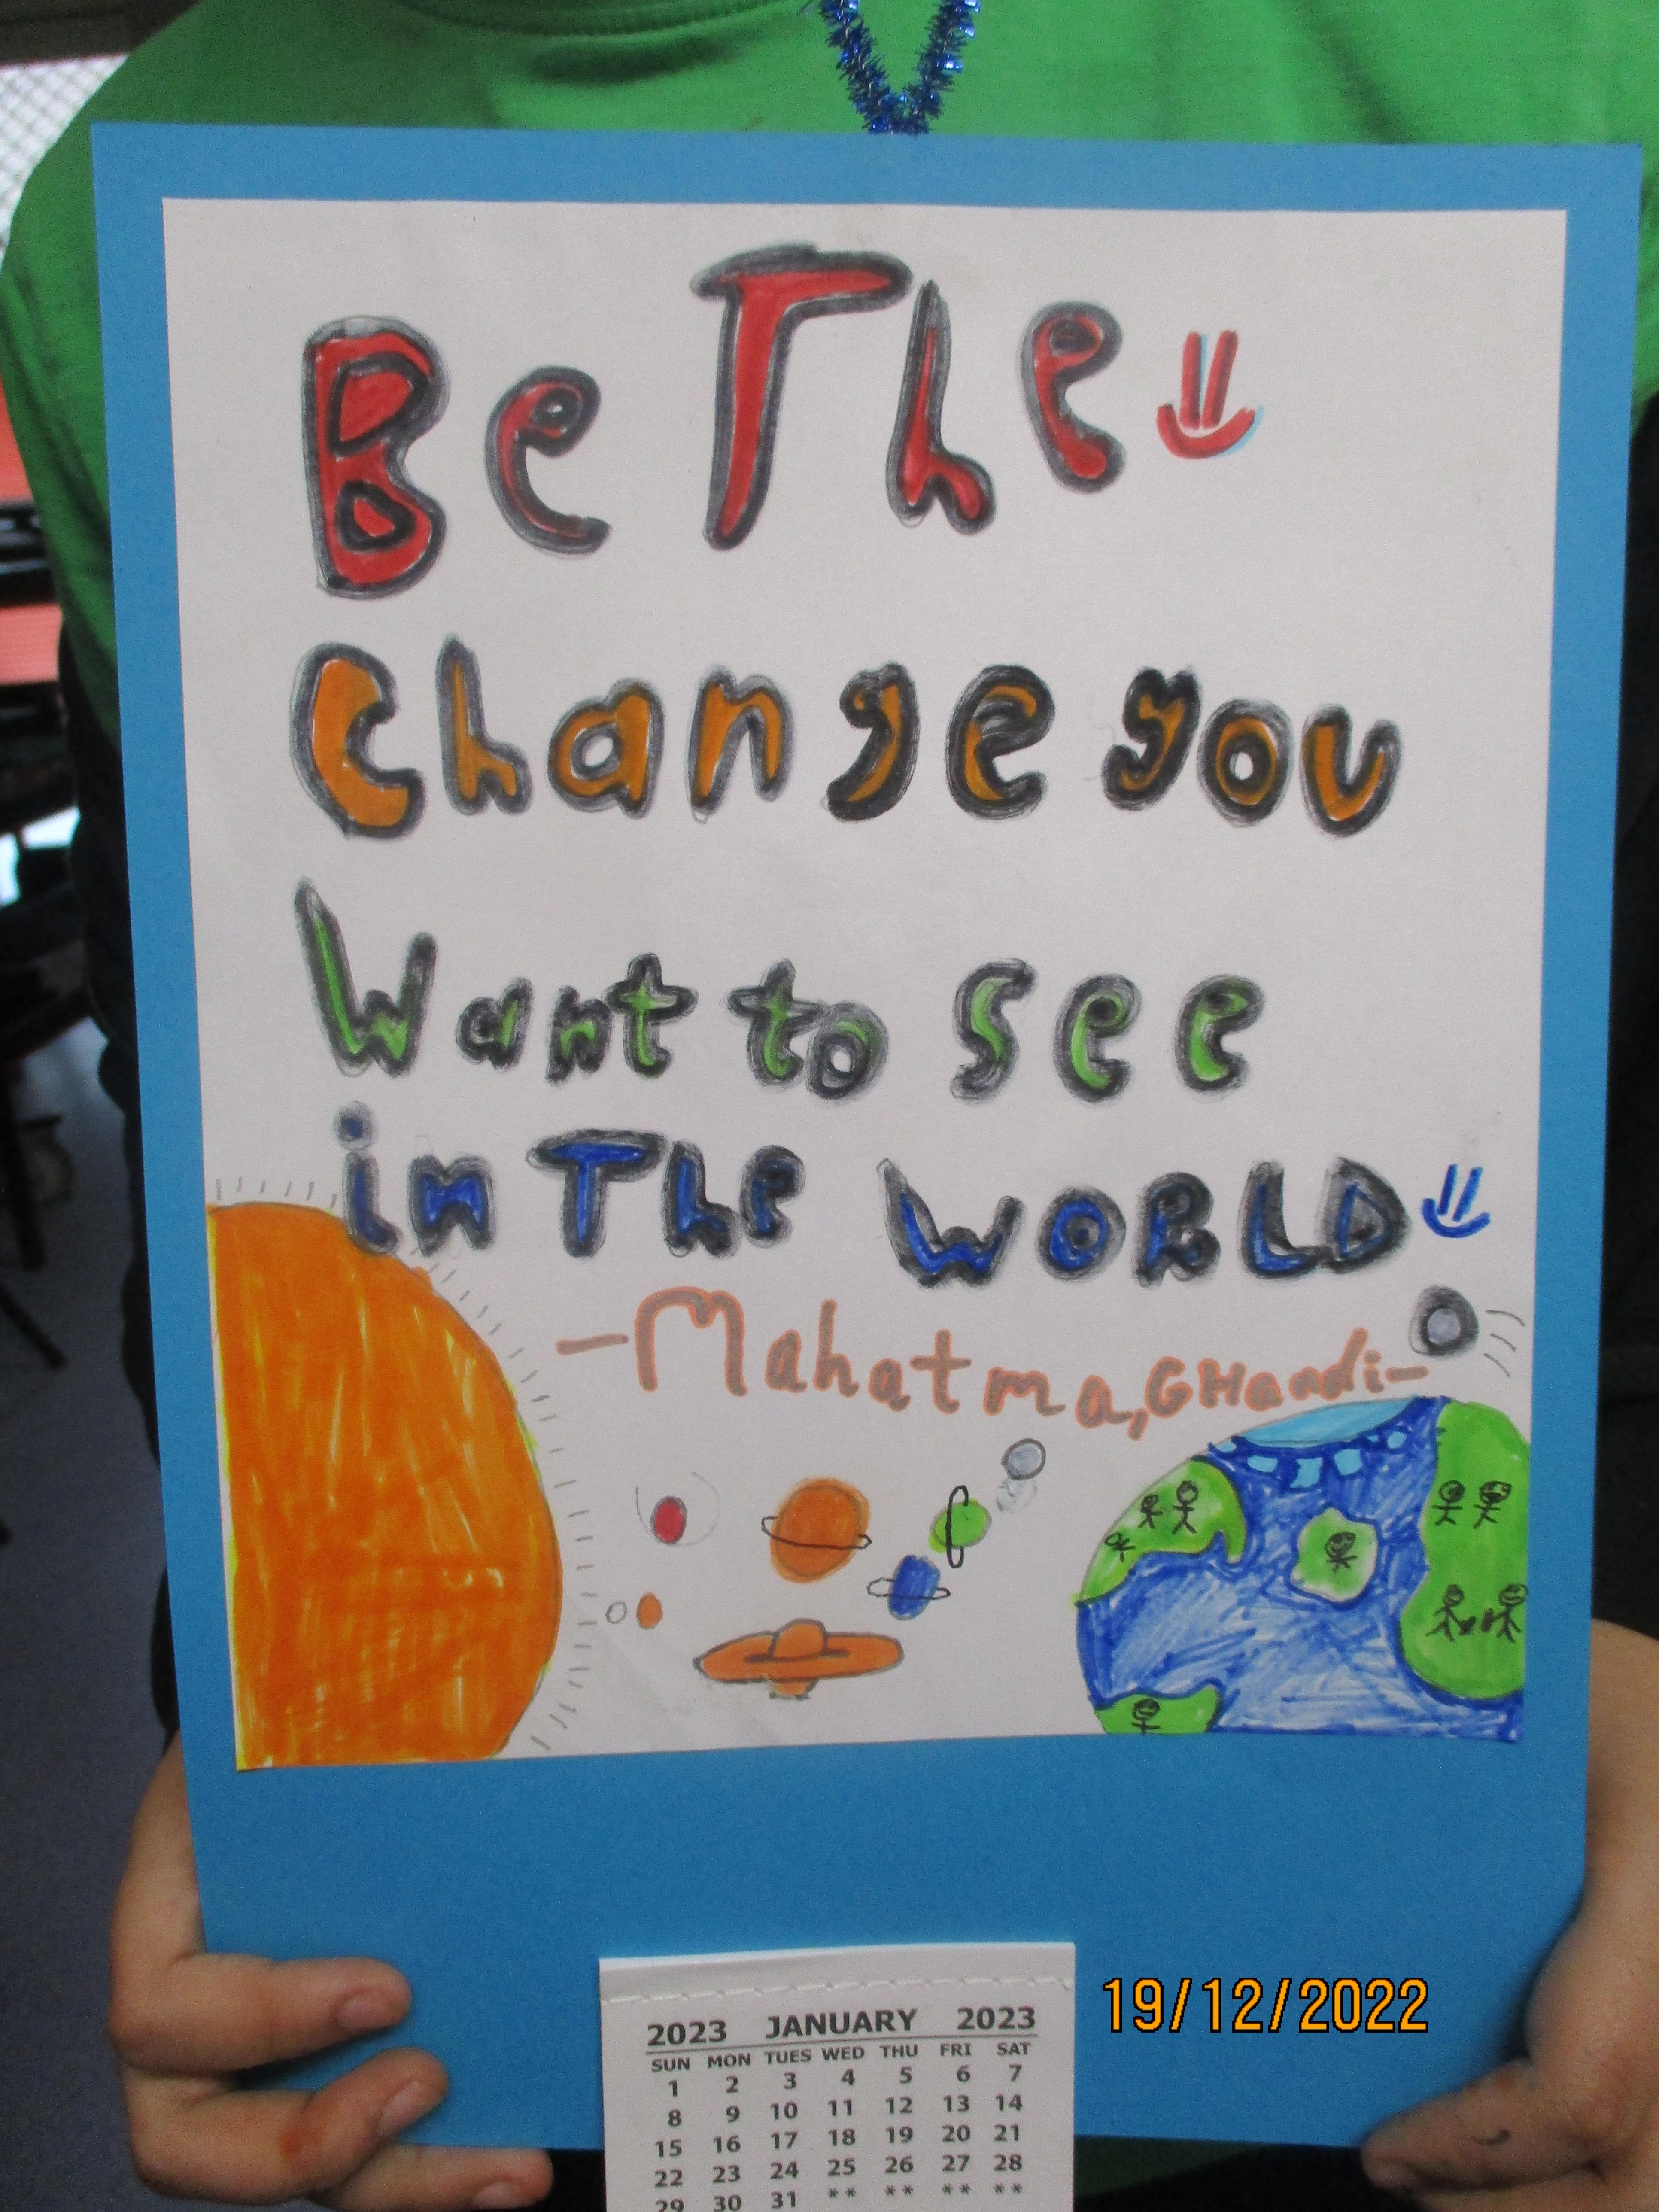 Be The
Change you
Want to see
in The WORLD
-Mahatma, GHandi-
19/12/2022
2023 JANUARY 2023
SUN MON TUES WED THU FRI SAT
1 2 3 4 5 6 7
8 9 10 11 12 13 14
15 16 17 18 19 20 21
22 23 24 25 26 27 28
29 30 31 ** ** ** **